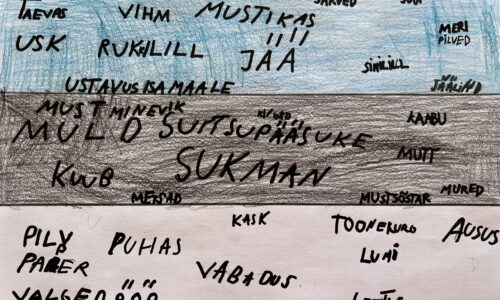 TAEVAS VIHM MUSTIKAS JÄRVED
USK RUKILILL JÄÄ MERI
PILVED
SINILILL
USTAVUS ISAMAALE JÄÄLIND
MUST MINEVIK
MULD SUITSUPÄÄSUKE KAABU
KUUB SUKMAN MUTT
METSAD MUSTSÕSTAR MURED
KASK
PILV PUHAS TOONEKURG AUSUS
PABER LUMI
VABADUS
VALGED ÖÖD